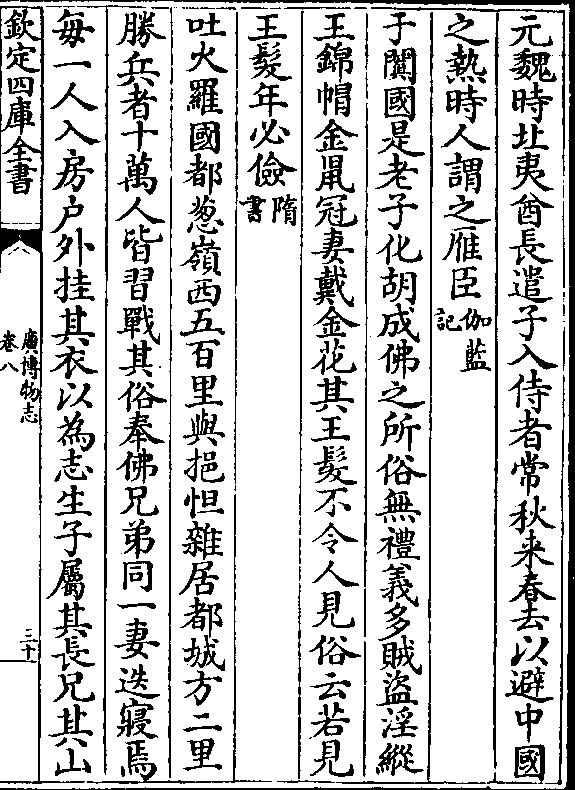 元魏時北夷酋長遣子入侍者常秋来春去以避中國
之熱時人謂之雁臣伽藍
記
于闐國是老子化胡成佛之所俗無禮義多賊盗淫縱
王錦帽金鼠冠妻戴金花其王髮不令人見俗云若見
王髮年必儉隋
書
吐火羅國都葱嶺西五百里與挹怛雜居都城方二里
勝兵者十萬人皆習戰其俗奉佛兄弟同一妻迭寢焉
每一人入房户外挂其衣以為志生子屬其長兄其山
欽定四庫全書
廣博物志
卷八
三十